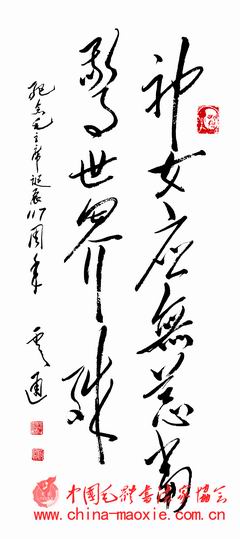 神女应無恙當
驚世界殊
纪念毛主席诞辰117周年
云通
中国毛體书法家协会
www.china-maoxie.com.cn